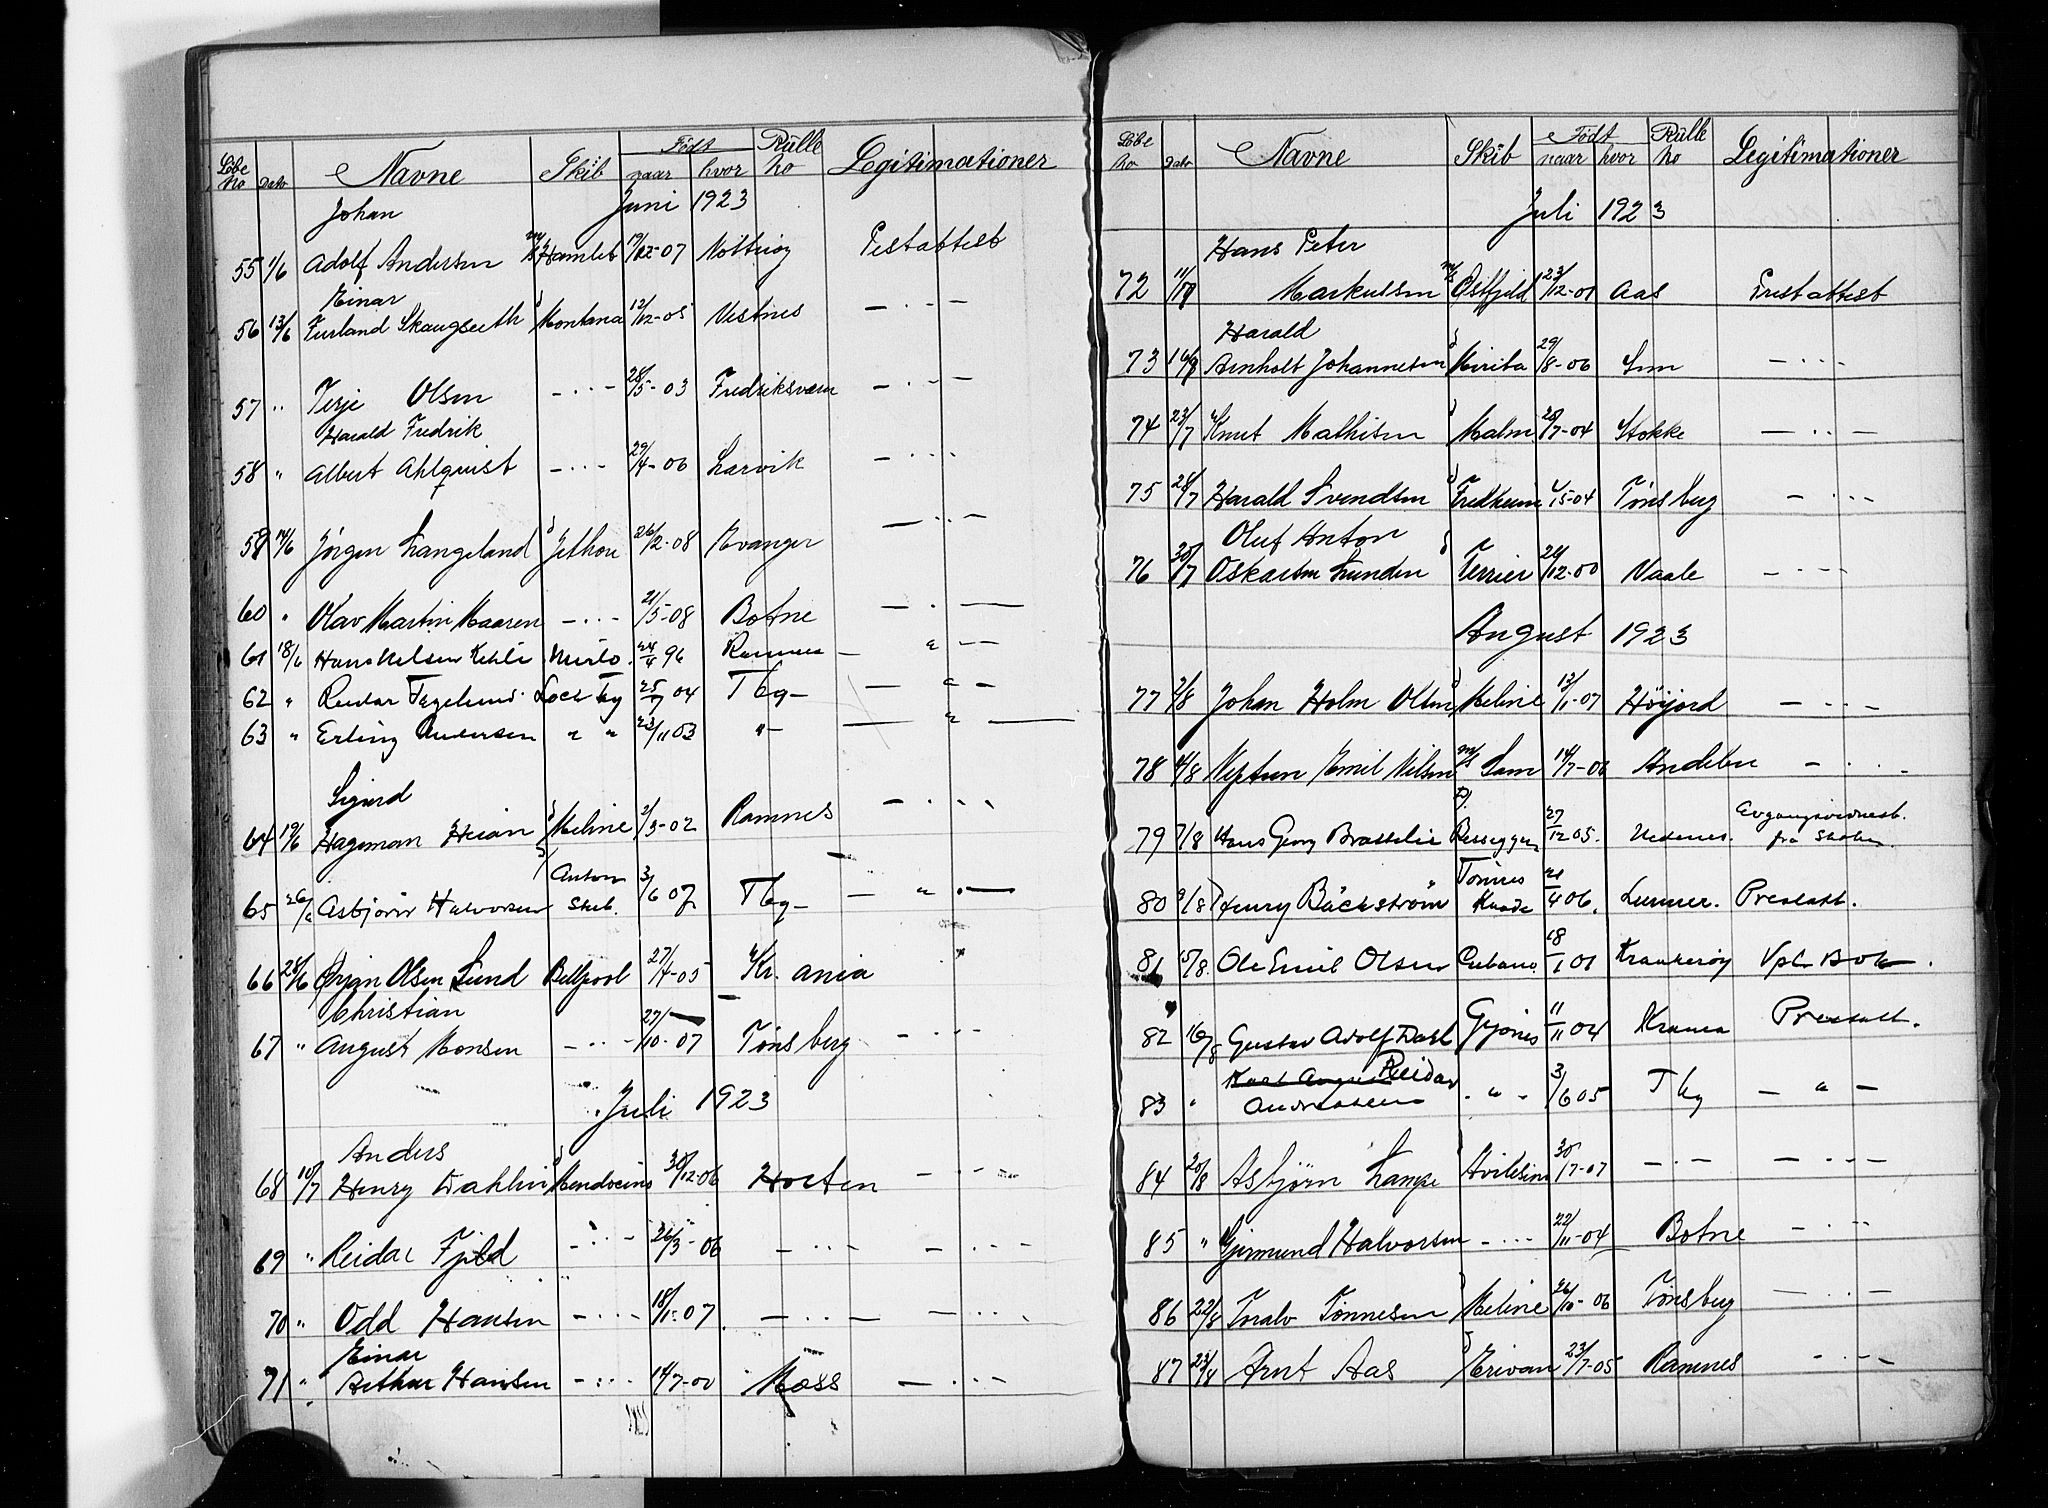 Löbe No Dato Navne Skib Födt naar hvor Rülle No Legitimationer
Juni 1923
Johan
55 1/6 Adolf Andersen m/s Hamlet 19/12-07 Nötteröy Prestattest
Einar
56 13/6 Furland Skaugseth s Montana 12/12-05 Vestnes — " —
57 " Terje Olsen — " — 28/5-03 Fredriksværn — " —
Harald Fredrik
58 " Albert Ahlquist — " — 29/4-06 Larvik — " —
59 14/6 Jörgen Langeland s Jethou 26/2-08 Kvanger — " —
60 " Olav Martin Maaren — " — 21/5-08 Botne — " —
61 18/6 Hans Nelsen Kehli Mirlo 24/4 96 Ramnes — " —
62 " Reidar Fagelund Loch Tay 25/7 04 Tbg — — " —
63 " Erling Andersen " " 23/11 03 " — — " —
Sigurd
64 19/6 Hagemann Heian s Meline 2/3-02 Ramnes — " —
65 26/6 Asbjörn Halvorsen s/ Anton Skib. 3/6 07 Tbg — — " —
66 28/6 Ørjan Olsen Lund Bellpool 27/4-05 Kr. ania "
Christian
67 " August Monsen — " — 27/10-07 Tönsberg — " —
Juli 1923
Anders
68 10/7 Henry Dahlin s Mendocino 30/12-06 Horten — " —
69 " Reidar Fjeld — " — 26/3-06 — " — — " —
70 " Odd Hansen — " — 18/1-07 — " — — " —
Einar
71 " Arthur Hansen — " — 14/7-00 Moss — " —
Löbe No Dato Navne Skib Födt naar hvor Rülle No Legitimationer
Juli 1923
Hans Peter
72 11/7 Markussen m/s Östfjeld 23/12-01 Aas Prestattest
Harald
73 16/7 Arnholt Johannesen s Mirita 29/8-06 Sem — " —
74 23/7 Knut Mathisen s Malm 28/7-04 Stokke — " —
75 28/7 Harald Svendsen s Fredheim 1/5-04 Tönsberg — " —
Oluf Anton
76 30/7 Oskarsen Lunden s Terrier 24/12-00 Vaale — " —
August 1923
77 2/8 Johan Holm Olsen s Meline 13/1-07 Höyjord — " —
78 4/8 Neptun Emil Nilsen m/s Sam 14/7-06 Andebu — " —
79 7/8 Hans Georg Brattelie D/ Besseggen 27/12 05. Nedenes. Avgangsvidnesb. fra Skolen.
80 9/8 Henry Bäckström Tönnes Kaade 21/4 06. Lunner. Prestatt.
81 15/8. Ole Emil Olsen Cubano 18/1 01 Kraakeröy Vpl. Bok.
82 16/8 Gustav Adolf Dahl Grjones 11/11 04 Krania Prestatt.
Karl August Reidar
83 " Andreassen " 3/6 05 Tbg — " —
84 20/8 Asbjörn Lampe Hvilesina 30/7-07 — " — — " —
85 " Gjermund Halvorsen — " — 22/11-04 Botne — " —
86 22/8 Toralv Tönnesen s Meline 26/10-06 Tönsberg — " —
87 23/8 Arnt Aas s Erivan 23/7-05 Ramnes — " —